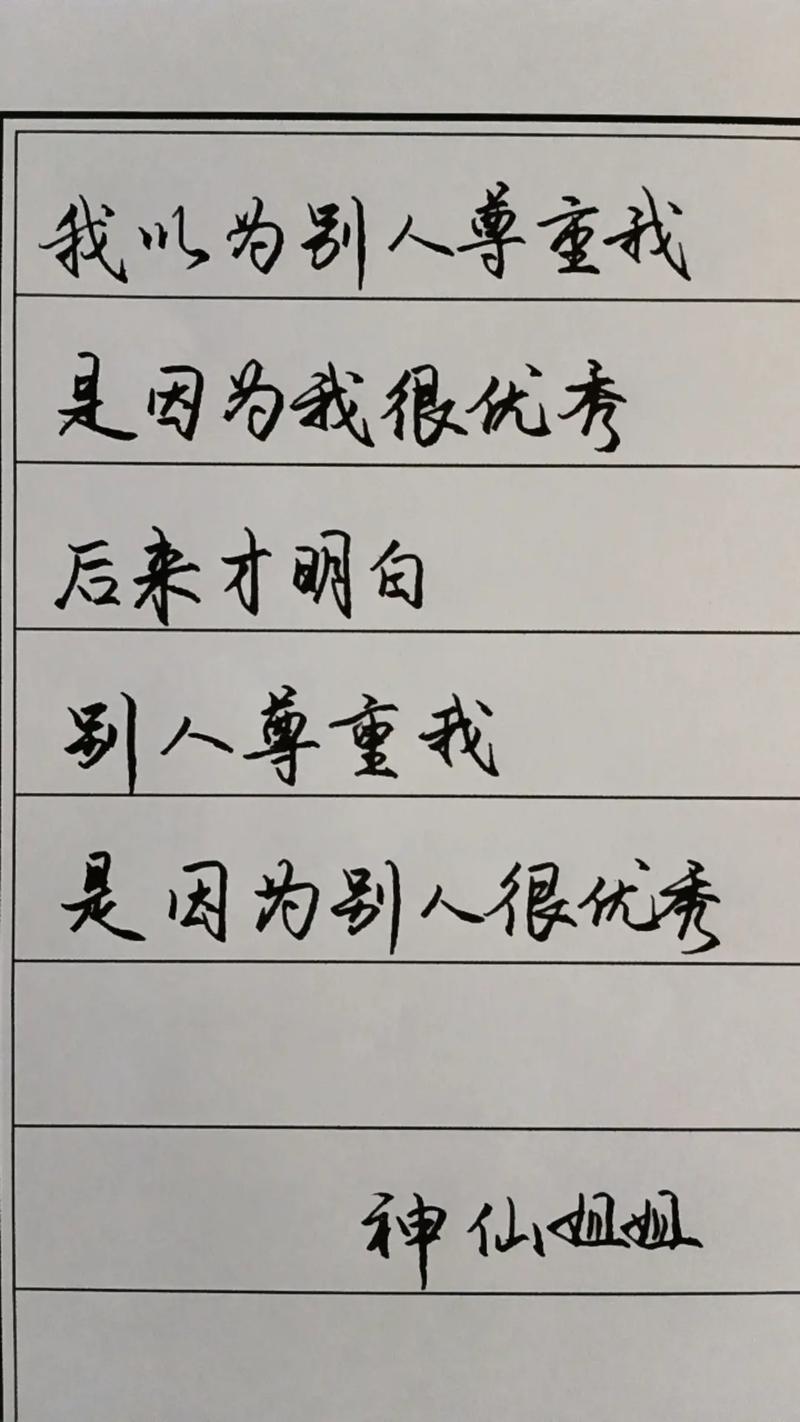 我以为别人尊重我
是因为我很优秀
后来才明白
别人尊重我
是因为别人很优秀
神仙姐姐